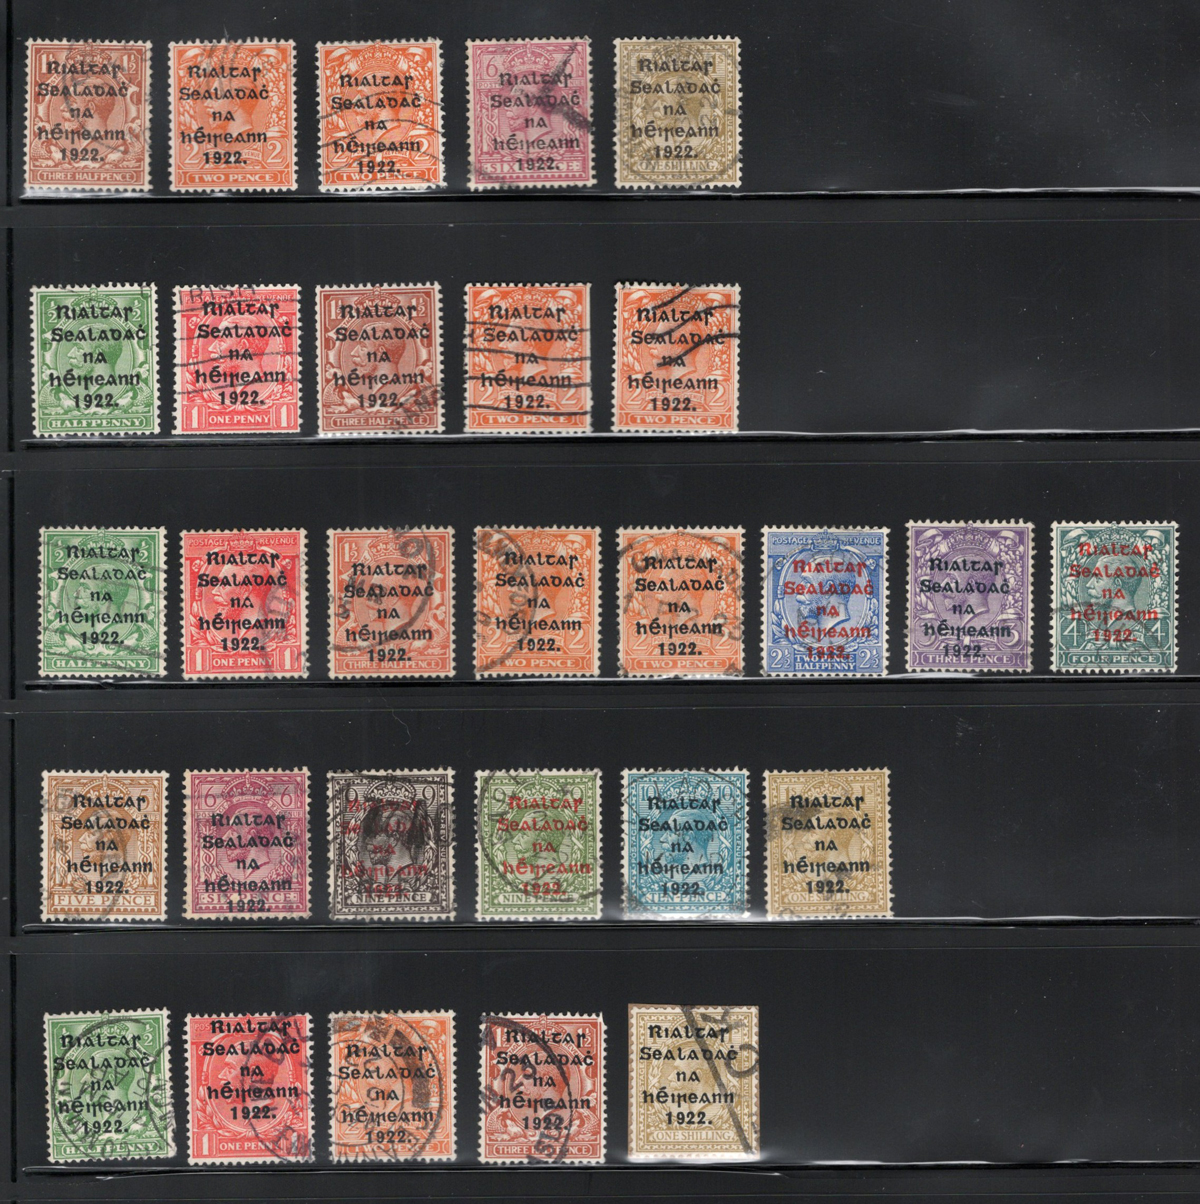 Rialtas
Sealadaċ
na
hÉireann
1922.
THREE HALFPENCE
Rialtas
Sealadaċ
na
hÉireann
1922.
2 2
TWO PENCE
Rialtas
Sealadaċ
na
hÉireann
1922.
2 2
TWO PENCE
6
Rialtas
Sealadaċ
na
hÉireann
1922.
SIXPENCE
Rialtas
Sealadaċ
na
hÉireann
1922.
ONE SHILLING
½ ½
Rialtas
Sealadaċ
na
hÉireann
1922.
HALFPENNY
POSTAGE REVENUE
Rialtas
Sealadaċ
na
hÉireann
1922.
1 ONE PENNY 1
1½ 1½
Rialtas
Sealadaċ
na
hÉireann
1922.
THREE HALFPENCE
Rialtas
Sealadaċ
na
hÉireann
1922.
2 2
TWO PENCE
Rialtas
Sealadaċ
na
hÉireann
1922.
2 2
TWO PENCE
½ ½
Rialtas
Sealadaċ
na
hÉireann
1922.
HALFPENNY
POSTAGE REVENUE
Rialtas
Sealadaċ
na
hÉireann
1922.
1 ONE PENNY 1
1½
Rialtas
Sealadaċ
na
hÉireann
1922.
THREE HALFPENCE
Rialtas
Sealadaċ
na
hÉireann
1922.
2 2
TWO PENCE
Rialtas
Sealadaċ
na
hÉireann
1922.
2 2
TWO PENCE
POSTAGE REVENUE
Rialtas
Sealadaċ
na
hÉireann
1922.
2½ TWO PENCE HALFPENNY 2½
POSTAGE REVENUE
Rialtas
Sealadaċ
na
hÉireann
1922.
THREE PENCE
Rialtas
Sealadaċ
na
hÉireann
1922.
4 4
FOUR PENCE
Rialtas
Sealadaċ
na
hÉireann
1922.
FIVE PENCE
6 6
Rialtas
Sealadaċ
na
hÉireann
1922.
SIXPENCE
9 9
Rialtas
Sealadaċ
na
hÉireann
1922.
NINE PENCE
9 9
Rialtas
Sealadaċ
na
hÉireann
1922.
NINE PENCE
10 10
Rialtas
Sealadaċ
na
hÉireann
1922.
TEN PENCE
Rialtas
Sealadaċ
na
hÉireann
1922.
ONE SHILLING
½
Rialtas
Sealadaċ
na
hÉireann
1922.
HALFPENNY
Rialtas
Sealadaċ
na
hÉireann
1922.
1 ONE PENNY
Rialtas
Sealadaċ
na
hÉireann
1922.
TWO PENCE
Rialtas
Sealadaċ
na
hÉireann
1922.
THREE HALFPENCE
Rialtas
Sealadaċ
na
hÉireann
1922.
ONE SHILLING